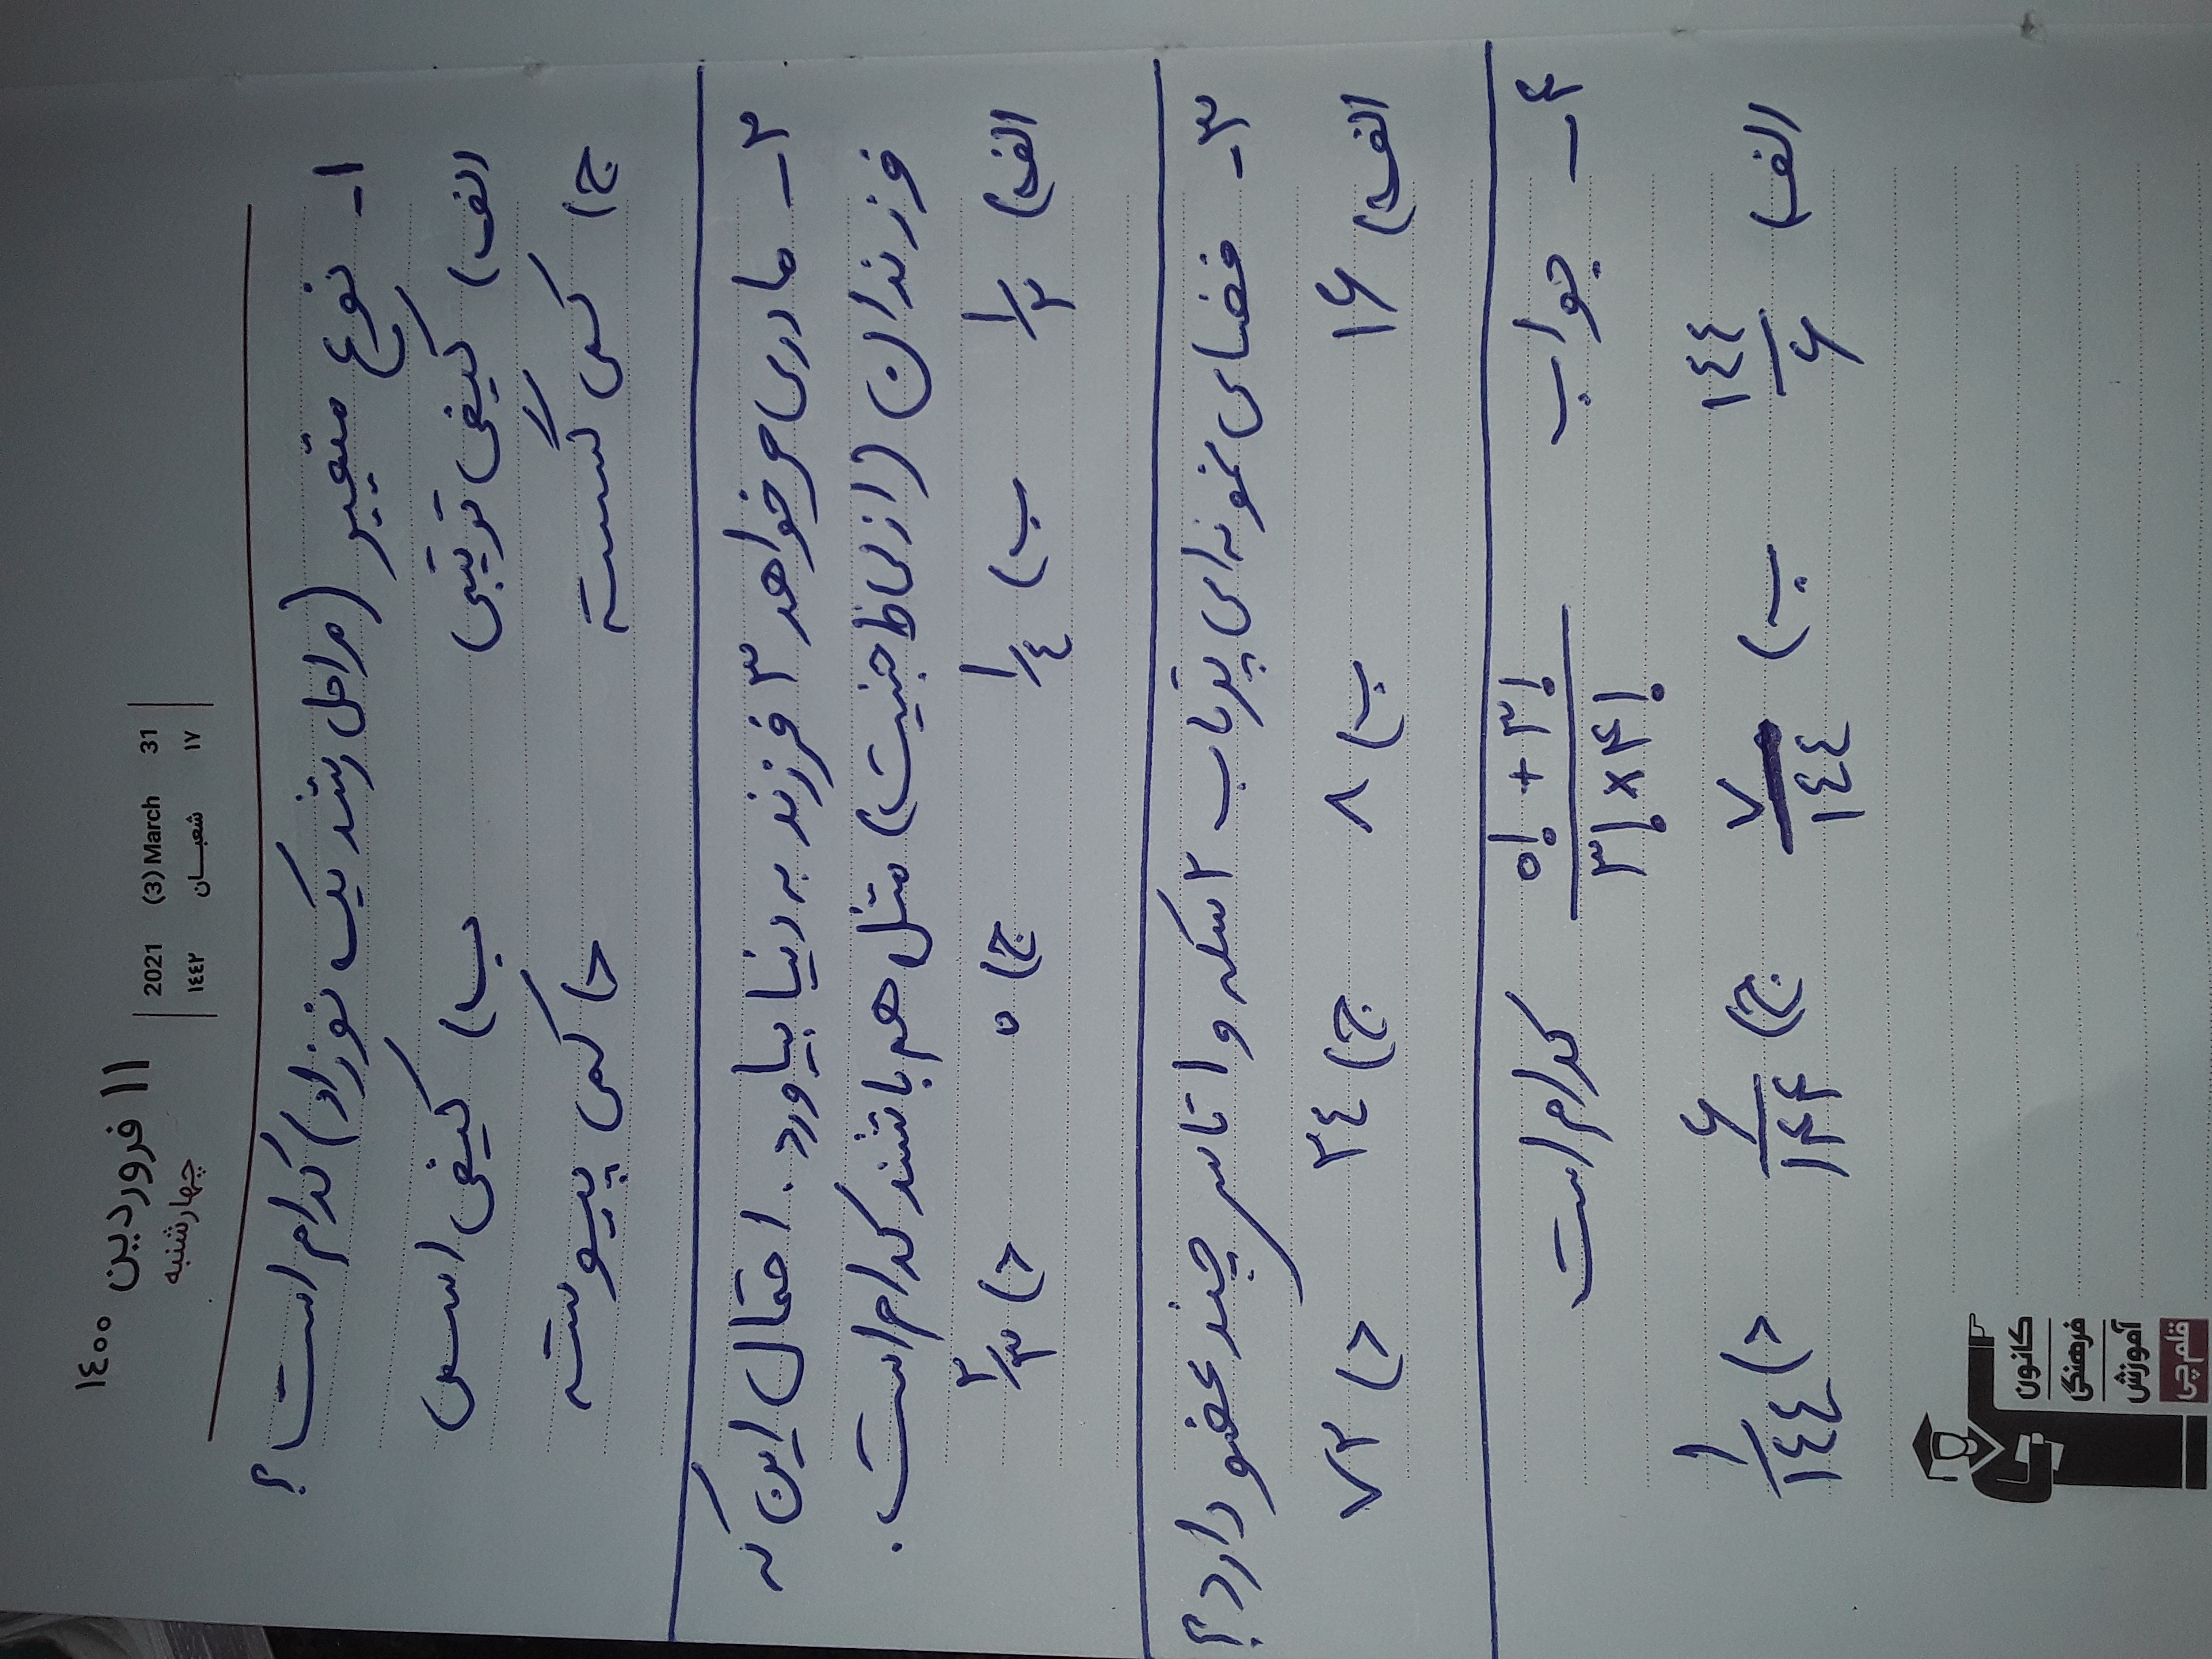 ۱۱ فروردین ۱۴۰۰
چهارشنبه
2021 (3) March 31
۱۴۴۲ شعبـان ۱۷
۱- نوع متغییر (مراحل رشد یک نوزاد) کدام است؟
الف) کیفی ترتیبی ب) کیفی اسمی
ج) کمی گسسته د) کمی پیوسته
۲- مادری می‌خواهد ۳ فرزند به دنیا بیاورد. احتمال این که
فرزندان (از لحاظ جنیت) مثل هم باشند کدام است.
الف) ۱/۲ ب) ۱/۴ ج) ۰ د) ۲/۳
۳- فضای نمونه‌ای پرتاب ۲ سکه و ۱ تاس چند عضو دارد؟
الف) ۱۶ ب) ۸ ج) ۲۴ د) ۷۲
۴- جواب (۰! + ۳!)/(۳! × ۴!) کدام است
الف) ۱۴۴/۶ ب) ۷/۱۴۴ ج) ۶/۱۴۴ د) ۱/۱۴۴
کانون
فرهنگی
آموزش
قلم‌چی